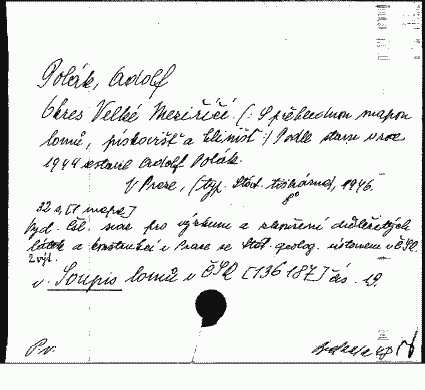 Polák, Adolf
Okres Velké Meziříčí. (: S přehlednou mapou
lomů, pískovišť a hlinišť :) Podle stavu v roce
1944 sestavil Adolf Polák.
V Praze, (typ. Stát. tiskárna), 1946.
8°
32 s, [1 mapa]
Vyd. Čs. svaz pro výzkum a zkoušení důležitých
látek a konstrukcí v Praze se Stát. geolog. ústavem v ČSR.
2 výt.
v. Soupis lomů v ČSR [136187] čís. 19.
P. v.